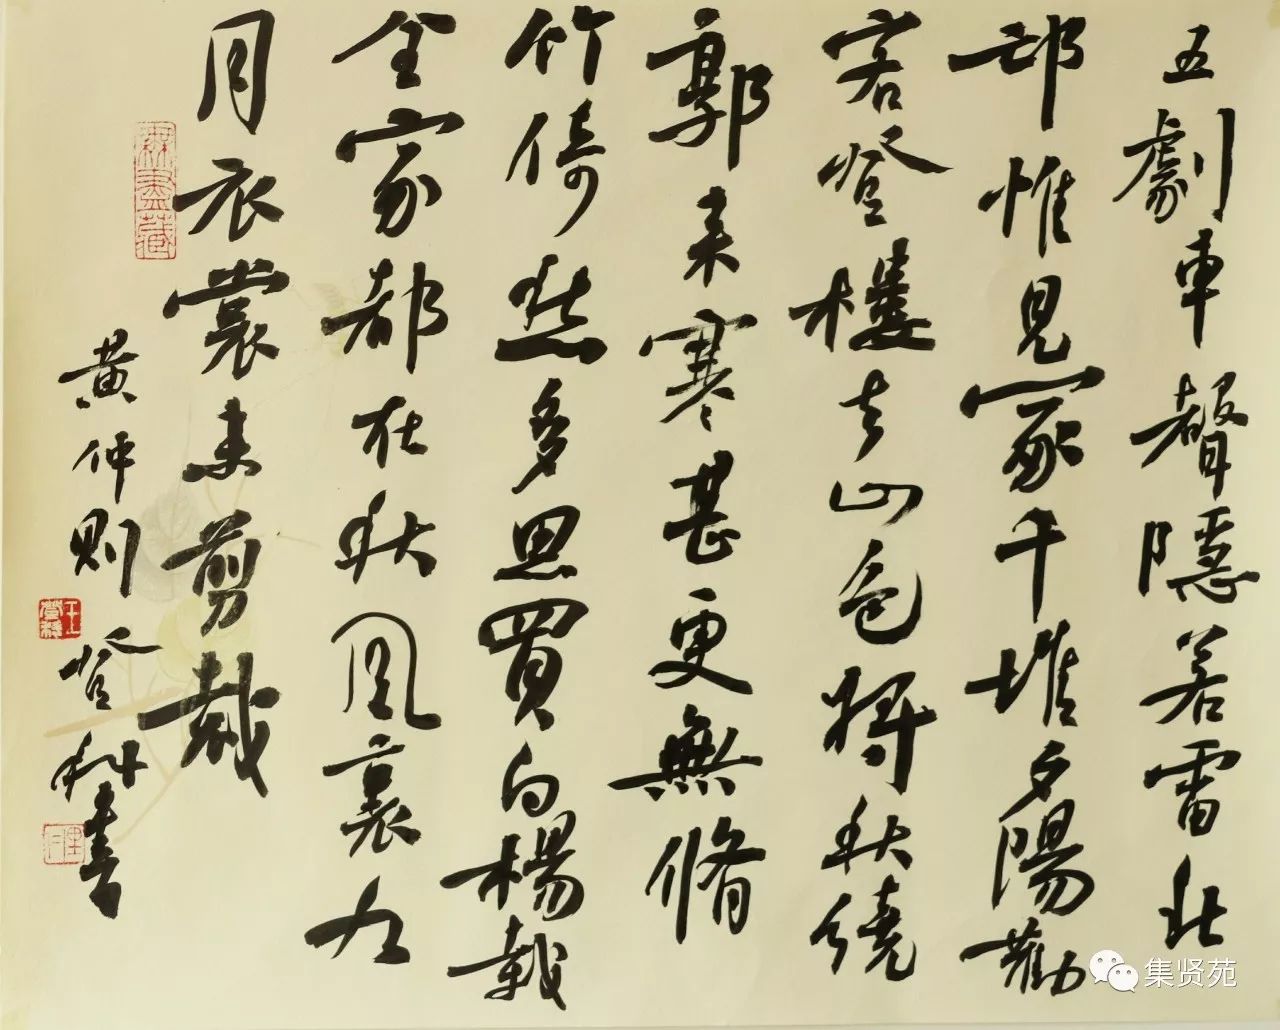 五劇車聲隱若雷北
邙惟見冢千堆夕陽勸
客登樓去山色將秋繞
郭来寒甚更無脩
竹倚愁多思買白楊栽
全家都在秋風裏九
月衣裳未剪裁
無盡藏
黄仲則 登科書
王登科
集贤苑